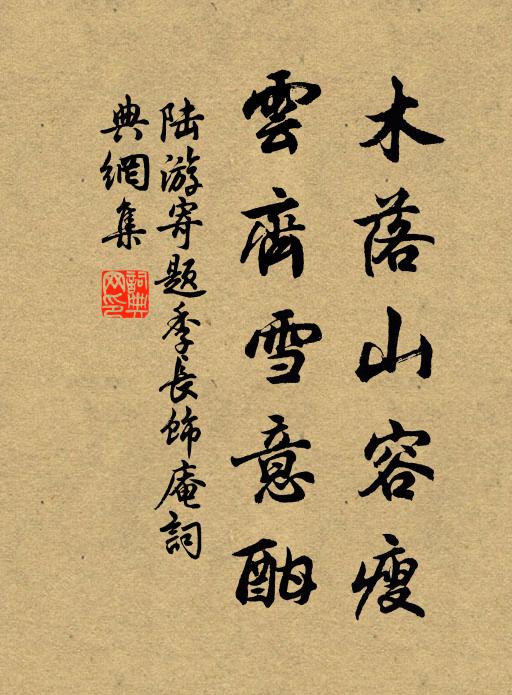 木落山容瘦
雲齊雪意酣
陆游寄題季長飾庵詞
典網集
詞典网印